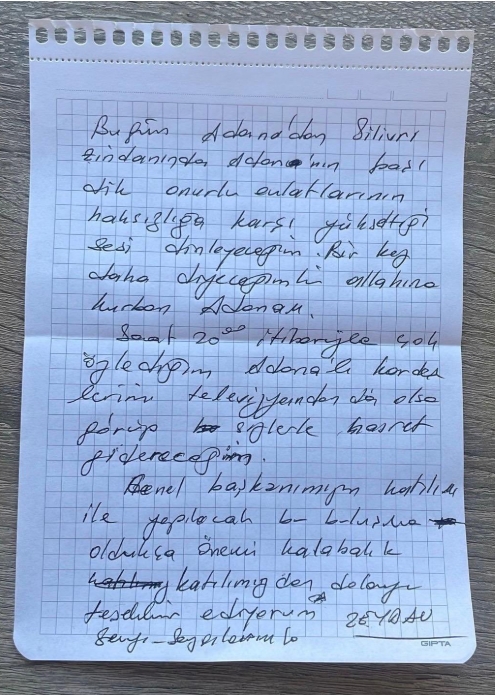 Bugün Adana'dan Silivri
zindanında Adana'nın başı
dik onurlu evlatlarının
haksızlığa karşı yükselttiği
sesi dinleyeceğim. Bir kez
daha diyeceğimki allahına
kurban Adanam.
Saat 20⁰⁰ itibariyle çok
özlediğim Adana'lı kardeş
lerimi televizyondan da olsa
görüp sizlerle hasret
gidereceğim.
Genel başkanımızın katılımı
ile yapılacak bu buluşma
oldukça önemli kalabalık
katılımınızdan dolayı
teşekkür ediyorum ZEYDAN
Sevgi-Saygılarımla
GIPTA